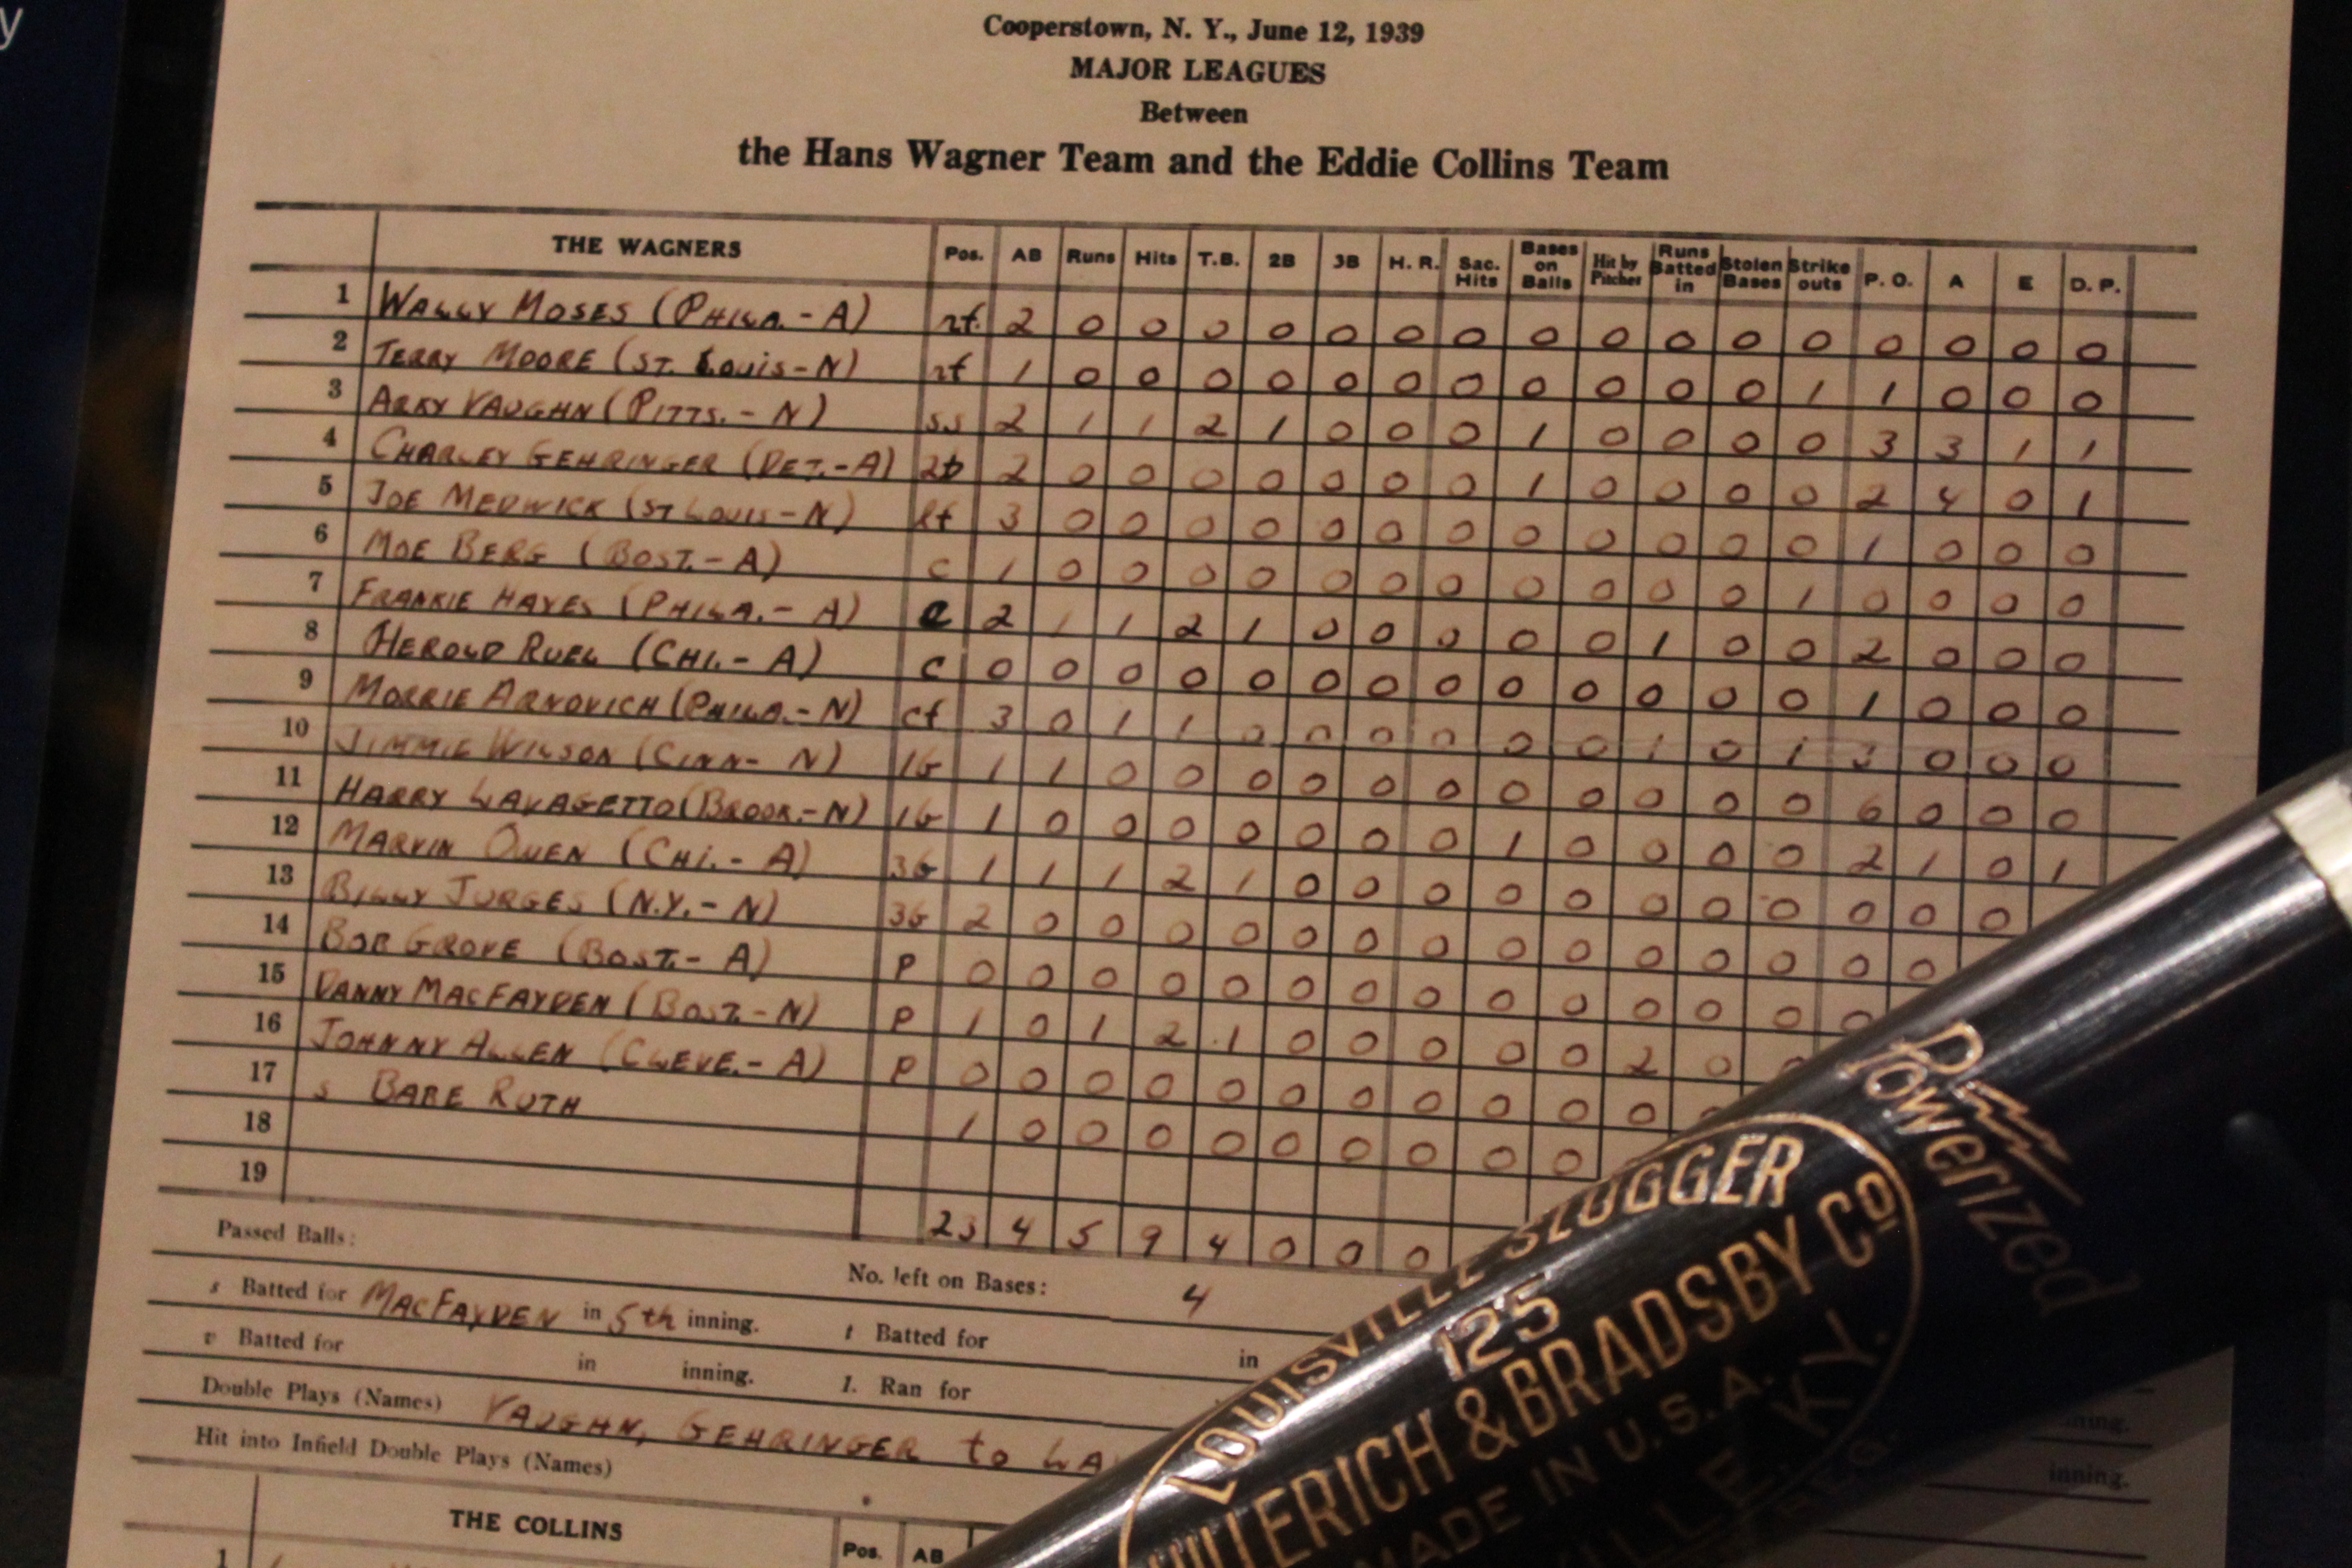 y
Cooperstown, N. Y., June 12, 1939
MAJOR LEAGUES
Between
the Hans Wagner Team and the Eddie Collins Team
THE WAGNERS Pos. AB Runs Hits T.B. 2B 3B H. R. Sac. Hits Bases on Balls Hit by Pitcher Runs Batted in Stolen Bases Strike outs P. O. A E D. P.
1 WALLY MOSES (PHILA. - A) rf. 2 0 0 0 0 0 0 0 0 0 0 0 0 0 0 0 0
2 TERRY MOORE (ST. LOUIS - N) rf 1 0 0 0 0 0 0 0 0 0 0 0 1 1 0 0 0
3 ARKY VAUGHN (PITTS. - N) ss 2 1 1 2 1 0 0 0 1 0 0 0 0 3 3 1 1
4 CHARLEY GEHRINGER (DET. - A) 2b 2 0 0 0 0 0 0 0 1 0 0 0 0 2 4 0 1
5 JOE MEDWICK (ST LOUIS - N) lf 3 0 0 0 0 0 0 0 0 0 0 0 0 1 0 0 0
6 MOE BERG (BOST. - A) c 1 0 0 0 0 0 0 0 0 0 0 0 1 0 0 0 0
7 FRANKIE HAYES (PHILA. - A) c 2 1 1 2 1 0 0 0 0 0 1 0 0 2 0 0 0
8 HEROLD RUEL (CHI. - A) c 0 0 0 0 0 0 0 0 0 0 0 0 0 1 0 0 0
9 MORRIE ARNOVICH (PHILA. - N) cf 3 0 1 1 0 0 0 0 0 0 1 0 1 3 0 0 0
10 JIMMIE WILSON (CINN - N) 1b 1 1 0 0 0 0 0 0 0 0 0 0 0 6 0 0 0
11 HARRY LAVAGETTO (BROOK. - N) 1b 1 0 0 0 0 0 0 0 1 0 0 0 0 2 1 0 1
12 MARVIN OWEN (CHI. - A) 3b 1 1 1 2 1 0 0 0 0 0 0 0 0 0 0 0
13 BILLY JURGES (N.Y. - N) 3b 2 0 0 0 0 0 0 0 0 0 0 0 0 0 0
14 BOB GROVE (BOST. - A) P 0 0 0 0 0 0 0 0 0 0 0 0 0 0
15 DANNY MACFAYDEN (BOST. - N) P 1 0 1 2 1 0 0 0 0 0 2 0 0
16 JOHNNY ALLEN (CLEVE. - A) P 0 0 0 0 0 0 0 0 0 0 0 0
17 s BABE RUTH 1 0 0 0 0 0 0 0 0 0
18
19
23 4 5 9 4 0 0 0
Passed Balls:
No. left on Bases: 4
s Batted for MACFAYDEN in 5th inning. t Batted for in
v Batted for in inning. 1. Ran for
inning.
Double Plays (Names) VAUGHN, GEHRINGER to LA
Hit into Infield Double Plays (Names)
inning.
THE COLLINS Pos. AB
1
Powerized
LOUISVILLE SLUGGER
125
HILLERICH & BRADSBY Co
MADE IN U.S.A.